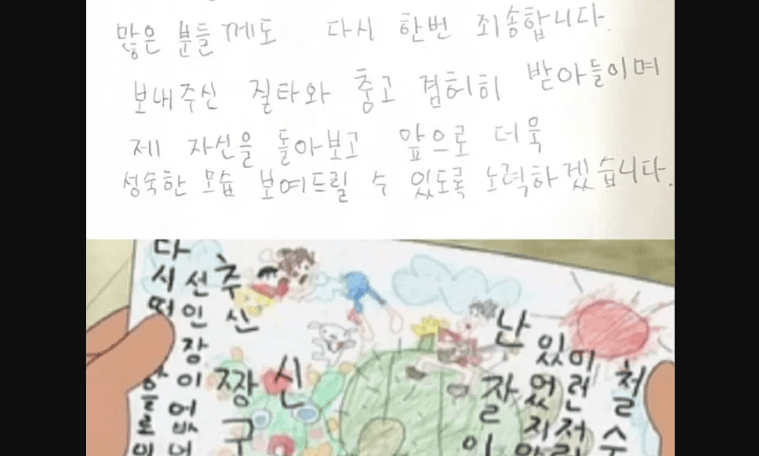 많은 분들께도 다시 한번 죄송합니다.
보내주신 질타와 충고 겸허히 받아들이며
제 자신을 돌아보고 앞으로 더욱
성숙한 모습 보여드릴 수 있도록 노력하겠습니다.
철수
이런저
있었지
난 잘
신
짱구
추신
선인장이 없어
다시